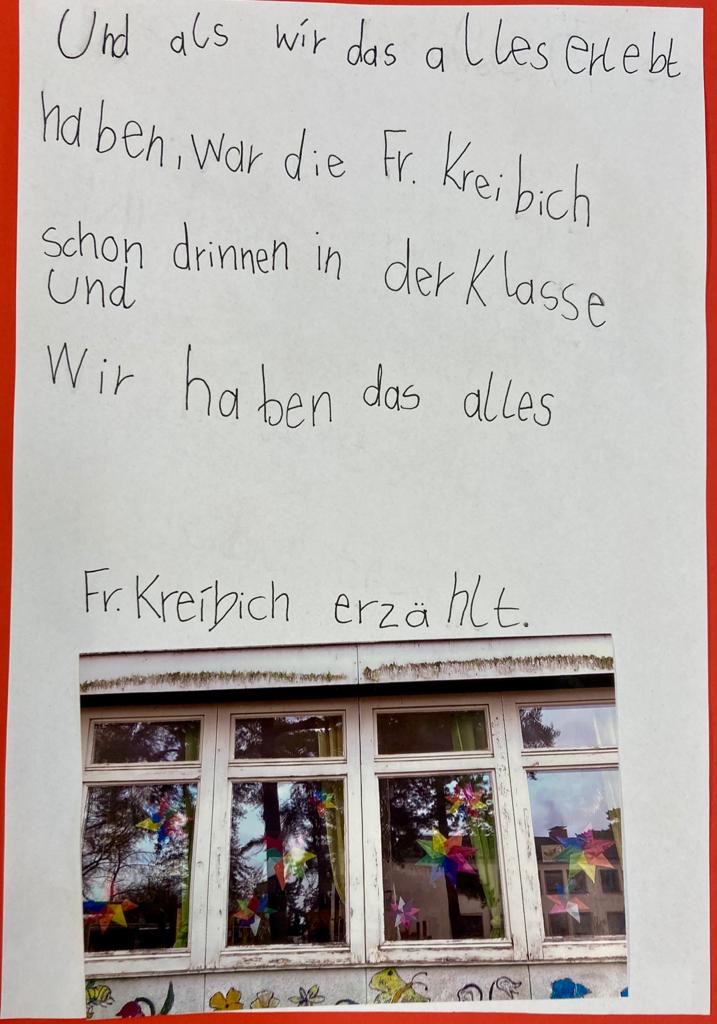 Und als wir das alles erlebt
haben, war die Fr. Kreibich
schon drinnen in der Klasse
und
Wir haben das alles
Fr. Kreibich erzählt.